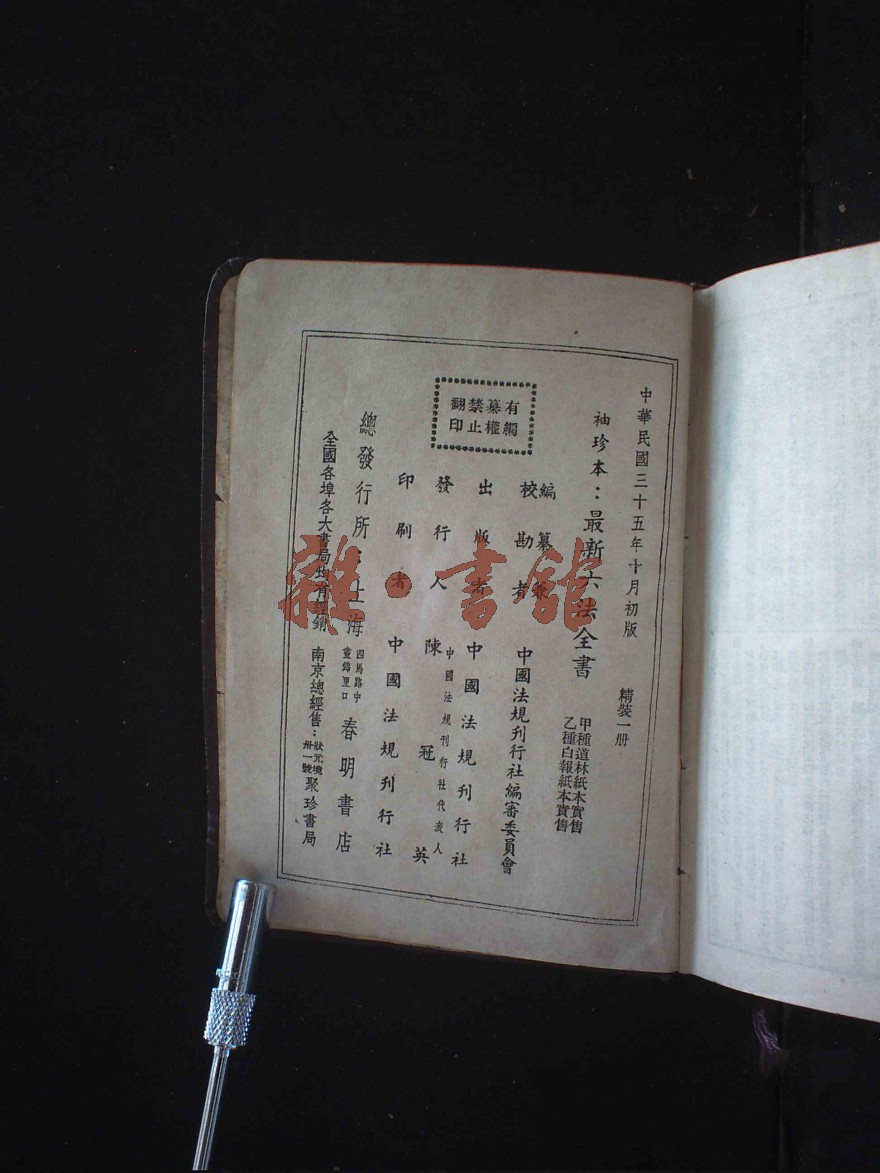 中華民國三十五年十月初版
精裝一册
袖珍本：最新六法全書
甲種道林紙本實售
乙種白報紙本實售
有觸纂權禁止翻印
編纂兼校勘者
中國法規刊行社編審委員會
出版者
中國法規刊行社
發行人
中國法規刊行社代表人
陳冠英
印刷者
中國法規刊行社
總發行所：上海
四馬路中
畫錦里口
春明書店
全國各埠各大書局均有經銷
南京總經售：
狀元境
卅一號
聚珍書局
雜·書館